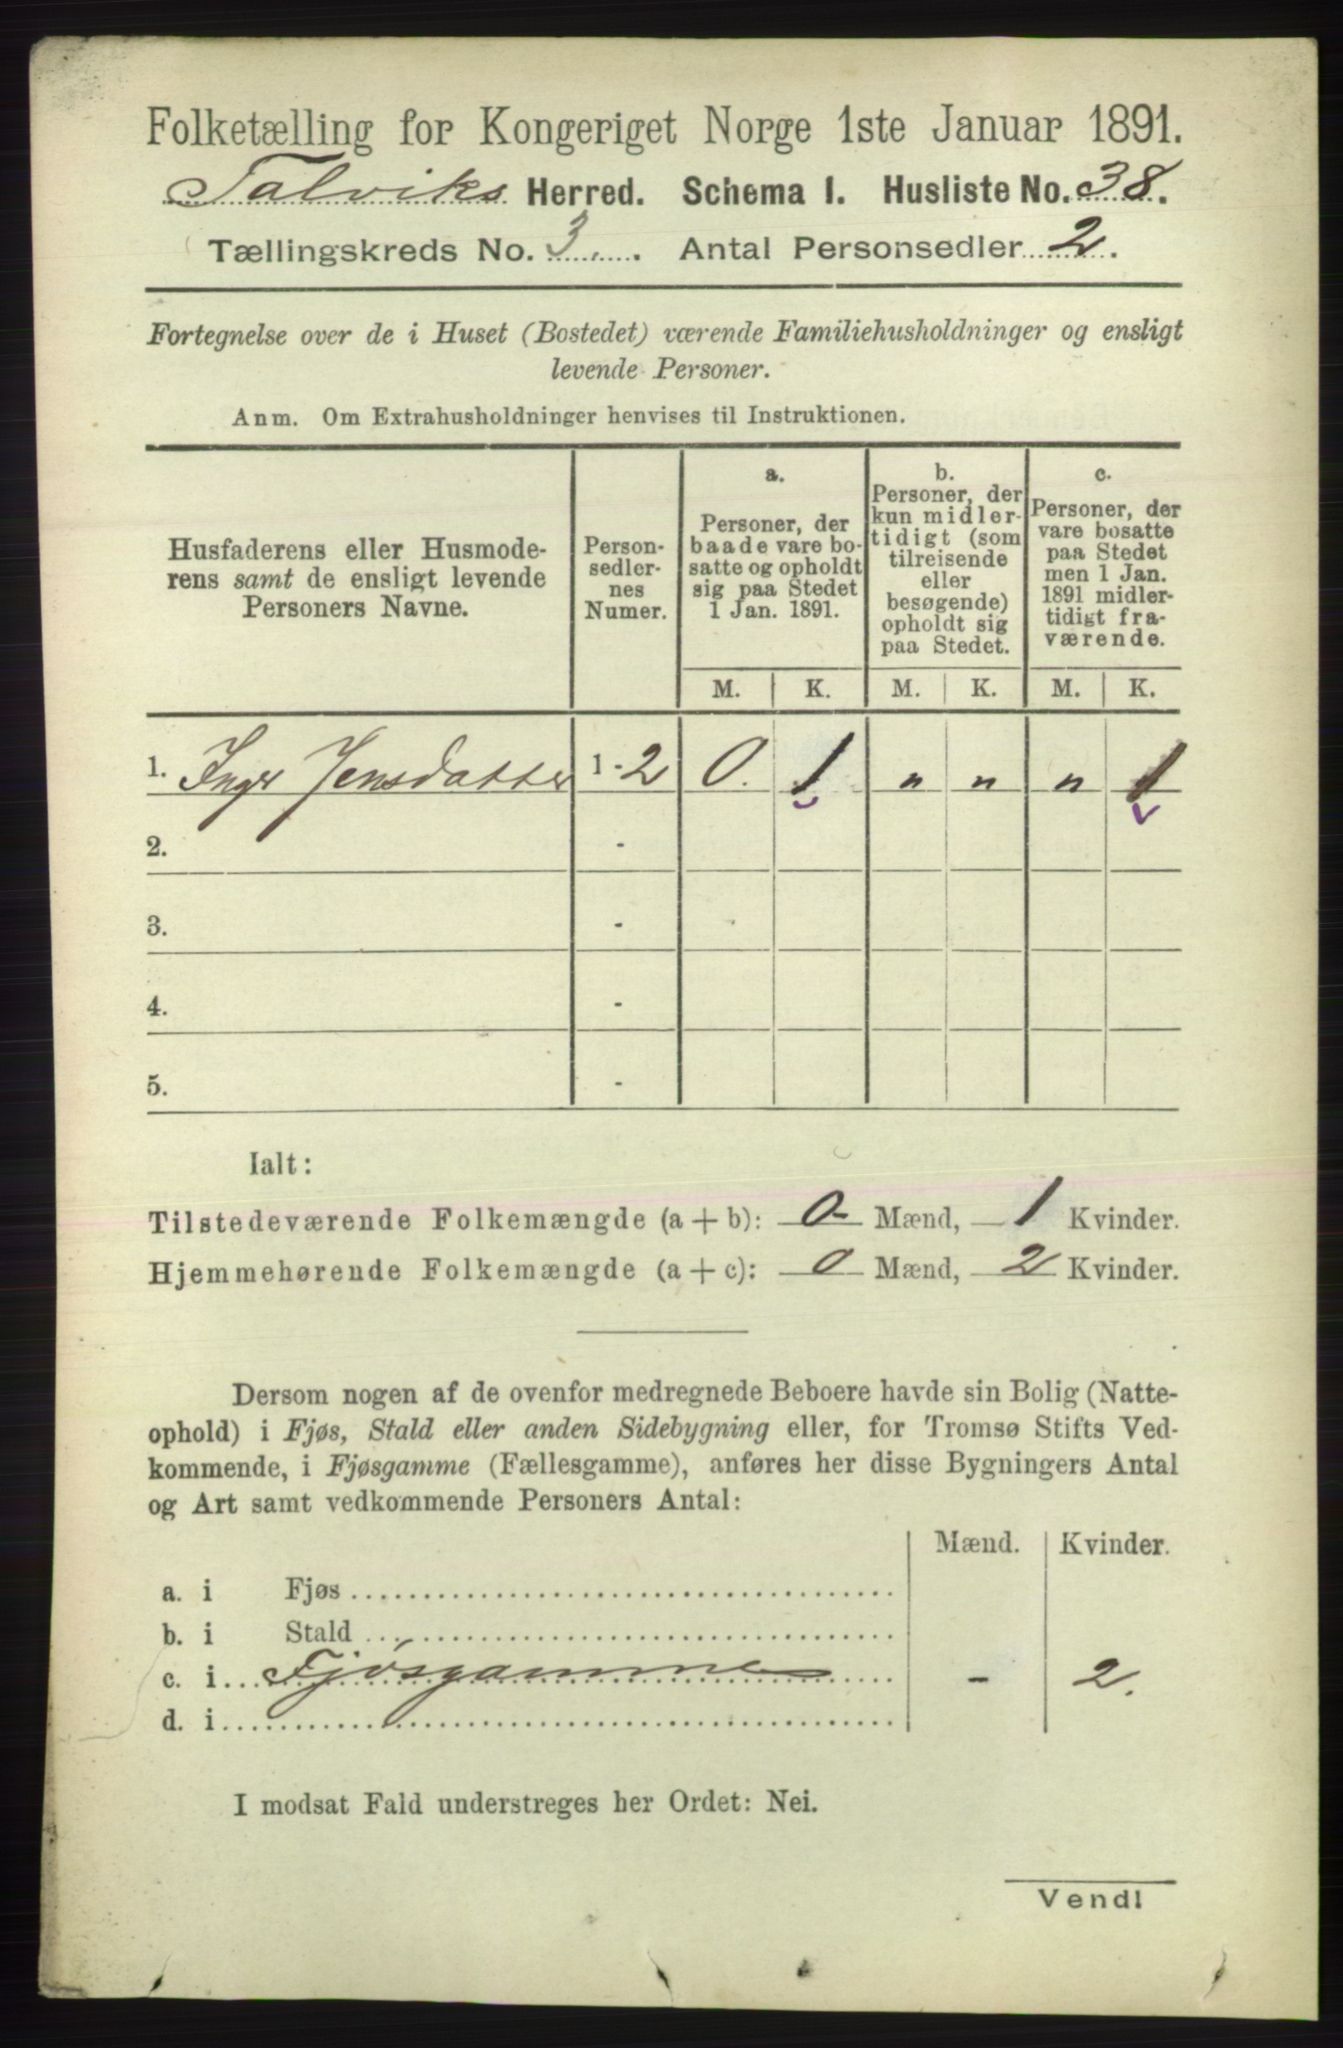 Folketælling for Kongeriget Norge 1ste Januar 1891.
Talviks Herred. Schema I. Husliste No. 38.
Tællingskreds No. 3. Antal Personsedler 2.
Fortegnelse over de i Huset (Bostedet) værende Familiehusholdninger og ensligt
levende Personer.
Anm. Om Extrahusholdninger henvises til Instruktionen.
Husfaderens eller Husmode-
rens samt de ensligt levende
Personers Navne.
Person-
sedler-
nes
Numer.
a.
Personer, der
baade vare bo-
satte og opholdt
sig paa Stedet
1 Jan. 1891.
b.
Personer, der
kun midler-
tidigt (som
tilreisende
eller
besøgende)
opholdt sig
paa Stedet.
c.
Personer, der
vare bosatte
paa Stedet
men 1 Jan.
1891 midler-
tidigt fra-
værende.
M. K. M. K. M. K.
1. Inger Jensdatter 1-2 0. 1 " " " 1
2. -
3. -
4. -
5. -
Ialt:
Tilstedeværende Folkemængde (a+b): 0 Mænd, 1 Kvinder.
Hjemmehørende Folkemængde (a+c): 0 Mænd, 2 Kvinder.
Dersom nogen af de ovenfor medregnede Beboere havde sin Bolig (Natte-
ophold) i Fjøs, Stald eller anden Sidebygning eller, for Tromsø Stifts Ved-
kommende, i Fjøsgamme (Fællesgamme), anføres her disse Bygningers Antal
og Art samt vedkommende Personers Antal:
Mænd. Kvinder.
a. i Fjøs
b. i Stald
c. i Fjøsgamme - 2.
d. i
I modsat Fald understreges her Ordet: Nei.
Vend!